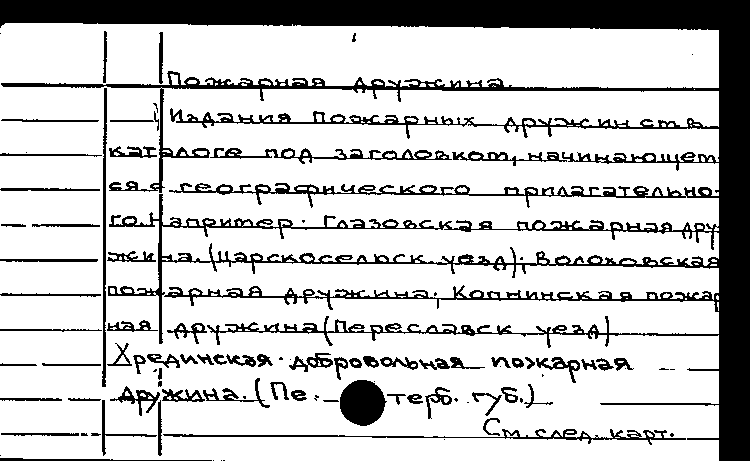 Пожарная дружина.
Издания пожарных дружин см. в
каталоге под заголовком, начинающем
ся с географического прилагательно-
го. Например: Глазовская пожарная дру
жина. (Царскосельск. уезд); Волоховская
пожарная дружина; Копнинская пожар
ная дружина (Переславск. уезд)
Хрединская добровольная пожарная
дружина. (Пе. терб. губ.)
См. след. карт.